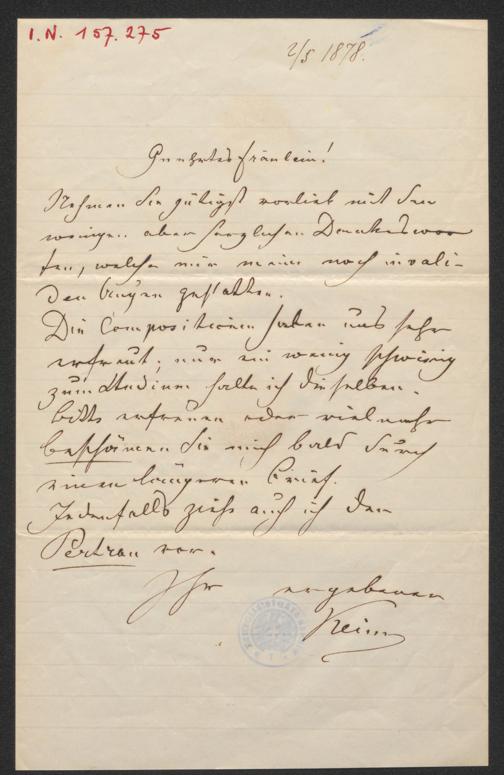 I.N. 157.275
2/5 1878.
Geehrtes Fräulein!
Nehmen Sie gütigst vorlieb mit den
wenigen aber herzlichen Dankeswor
ten, welche mir meine noch invali-
den Augen gestatten.
Die Compositionen haben uns sehr
erfreut; nur ein wenig schwierig
zum Studium halte ich dieselben.
Bitte erfreuen oder vielmehr
beschämen Sie mich bald durch
einen längeren Brief.
Jedenfalls ziehe auch ich den
vor.
Ihr ergebener